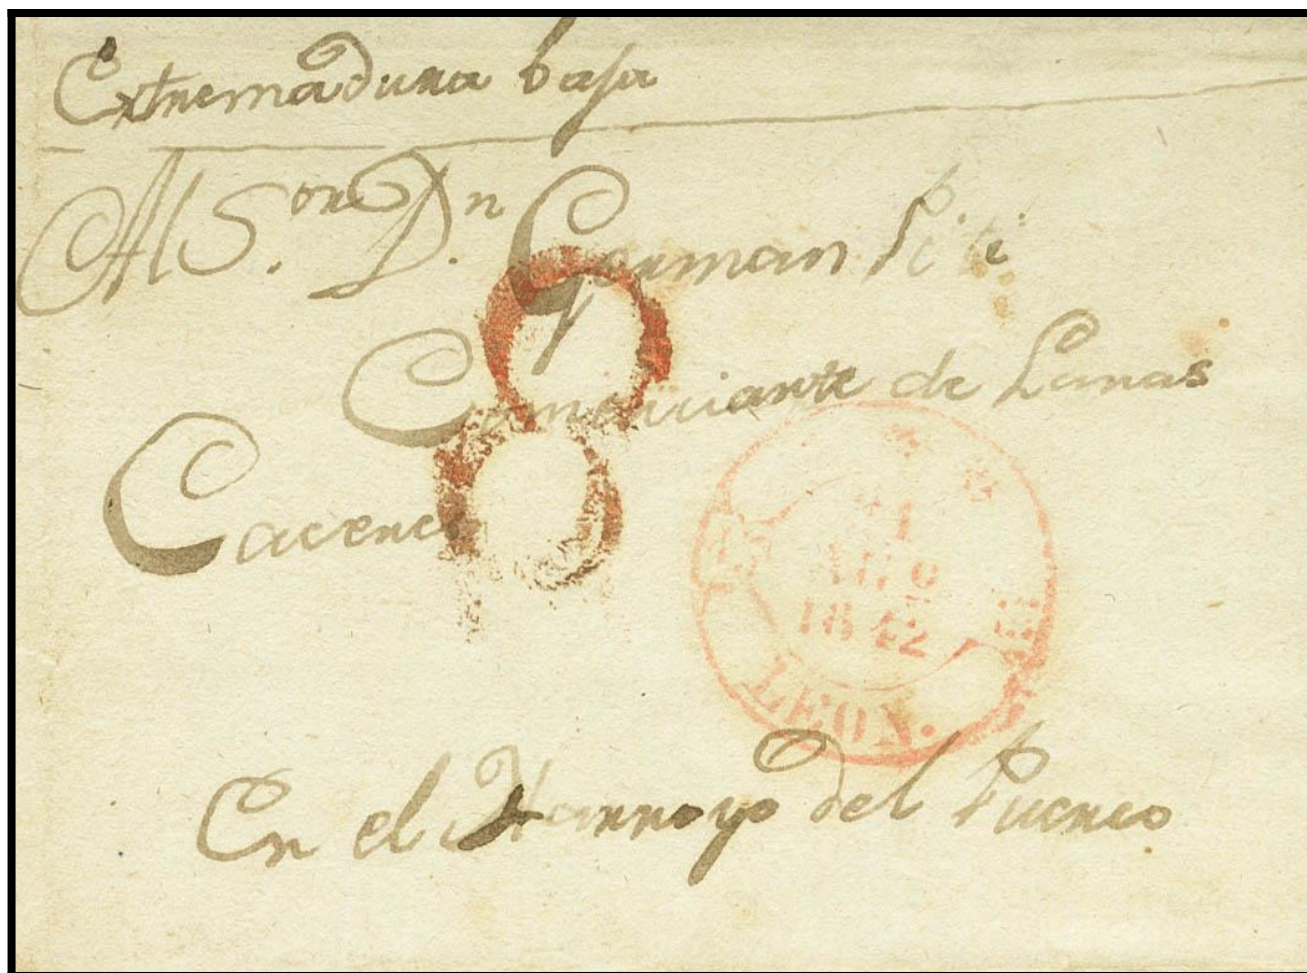 Extremadura baja
Al S.or D.n German Piti
Comerciante de Lanas
8
Caceres
21
AGO
1842
LEON.
En el Harroyo del Puerco